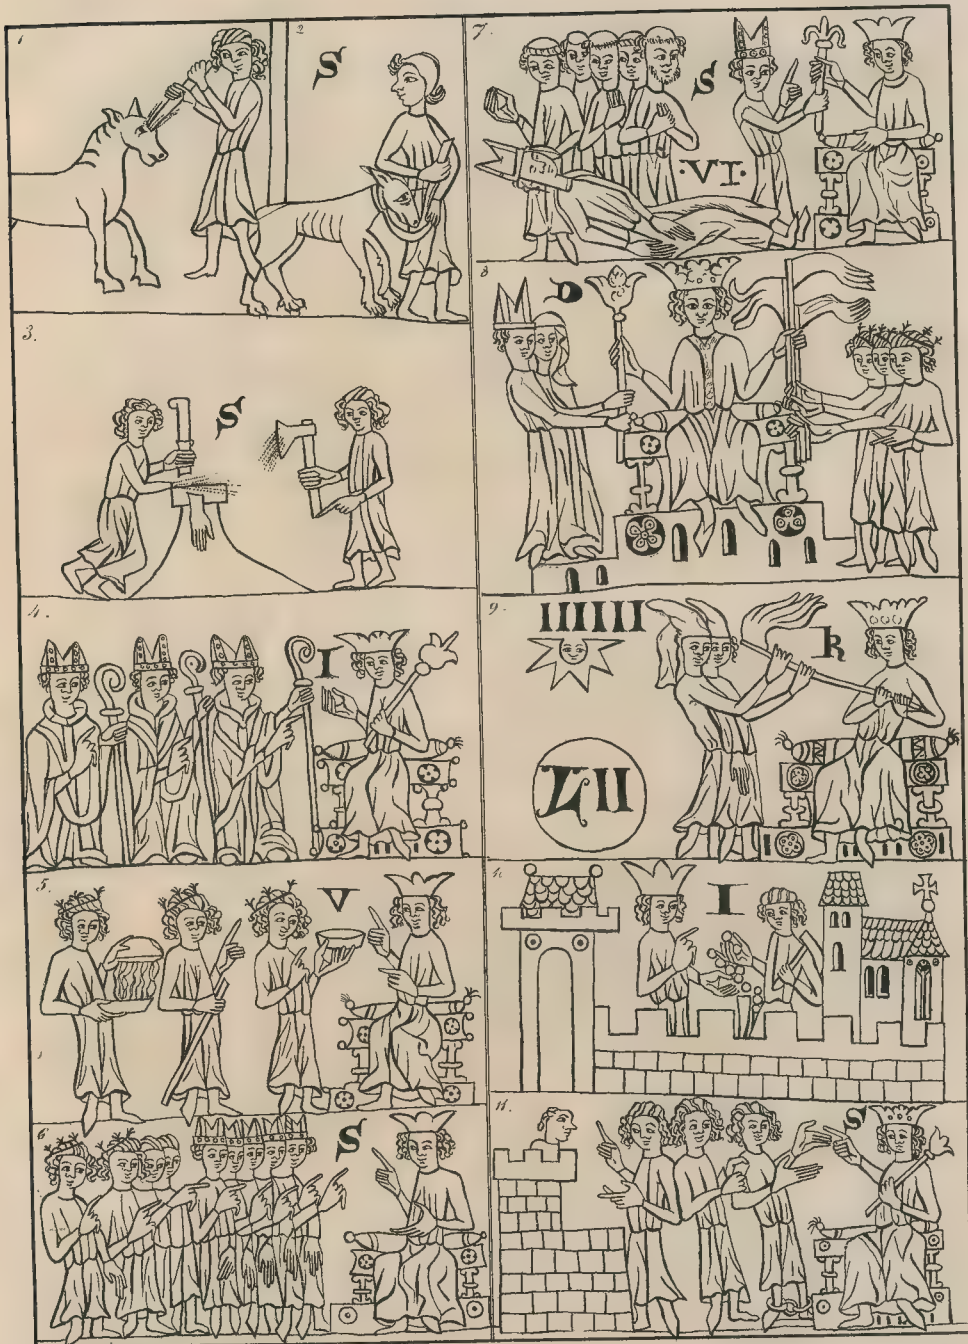 1.
2
S
3.
S
4.
I
5.
V
6
S
7.
S
·VI·
8
D
9.
IIIIII
R
LII
I
11.
S